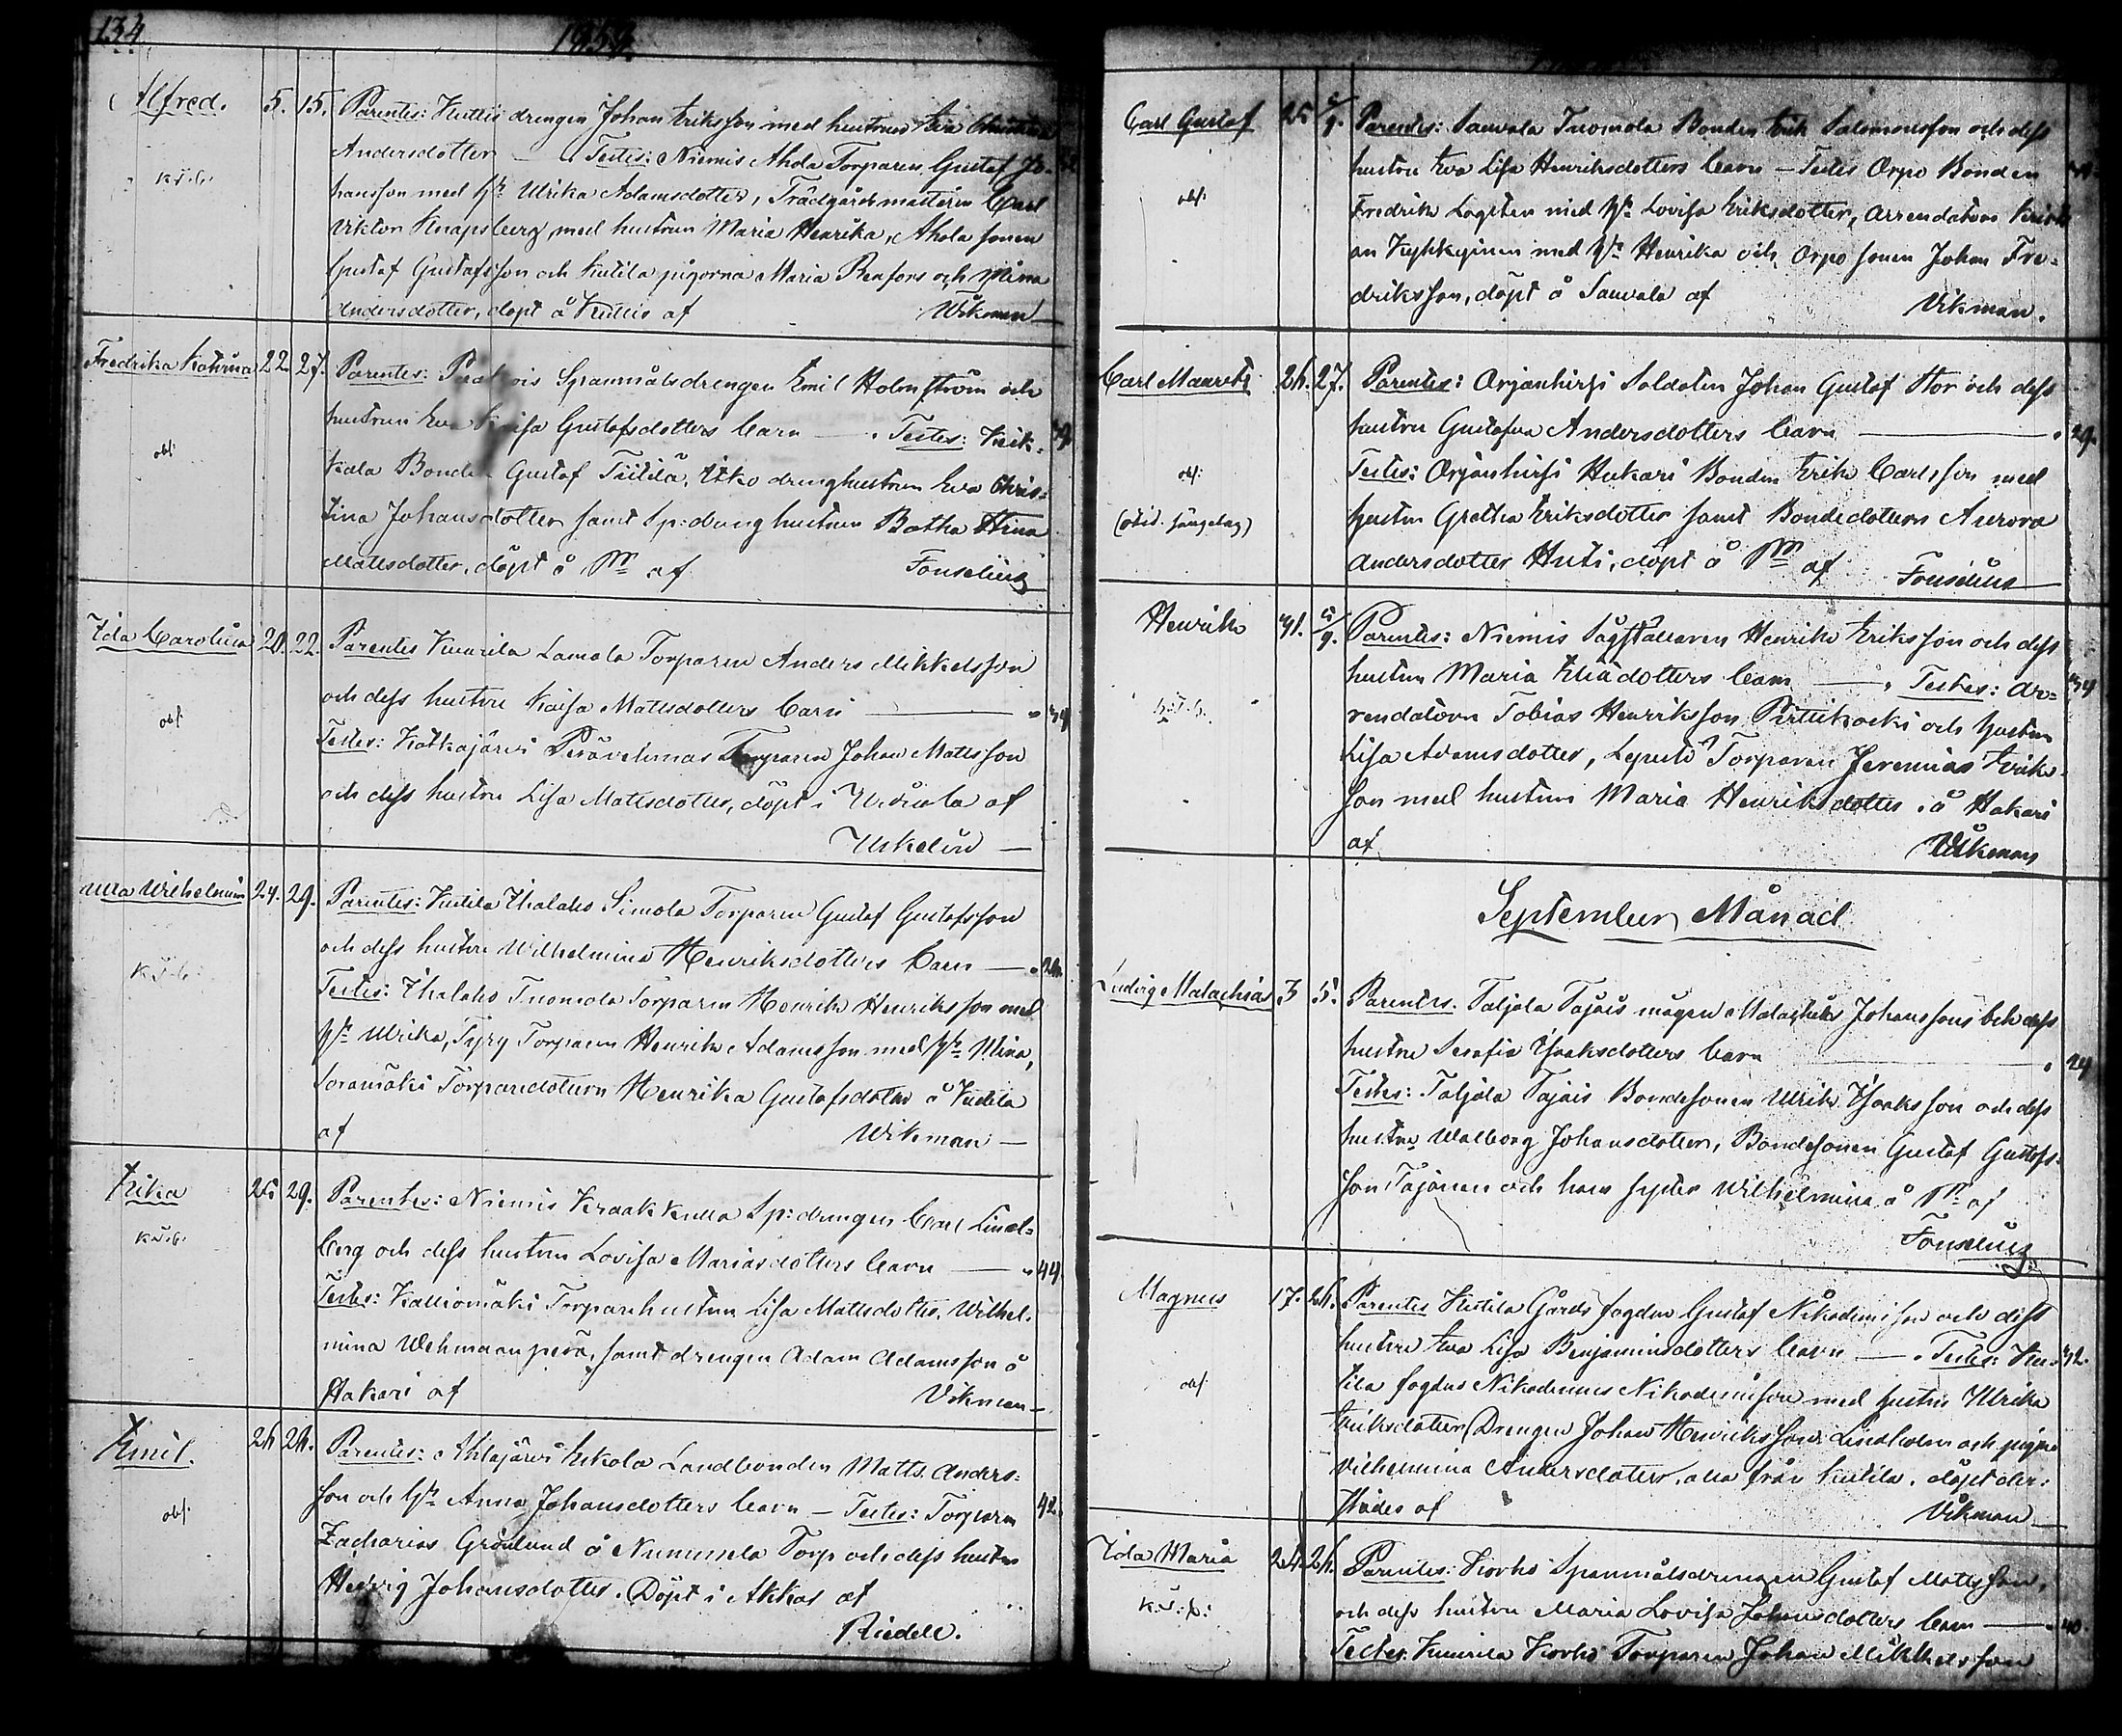 134
1859.
Alfred. 5. 15. Parentes: Kutteis drengen Johan Eriksson med hustrun Eva
Andersdotter — Testes: Niemis Ahola Torparen Gustaf Jo-
hansson med H:u Ulrika Adamsdotter, Trädgårdsmästaren Carl
Viktor Knapsberg, med hustrun Maria Henrika, Ahola sonen
Gustaf Gustafsson och Kutila pigorna Maria Renfors och Mina
Andersdotter, döpt å Kutteis af Wikman
Fredrika Katrina 22. 27. Parentes: Spannmålsdrengen Emil Holmström och
obf. hustrun Eva Kaisa Gustafsdotters barn — Testes: Keik-
kala Bonden Gustaf Tiitilä, Uko drenghustrun Eva Chris-
tina Johansdotter samt Sp:dränghustrun Stina
Mattsdotter, döpt å af Fonselius
Ida Carolina 20. 22. Parentes Kuurila Lamola Torparen Anders Mikkelsson
och dess hustru Kaisa Mattsdotters barn —
obf Testes: Kätkäjärvi Torparen Johan Mattsson
och dess hustru Lisa Mattsdotter, döpt i Urdiala af
Uskelin —
Ulla Wilhelmina 24. 29. Parentes: Kutila Uhalako Simola Torparen Gustaf Gustafsson
och dess hustru Wilhelmina Henriksdotters barn —
Testes: Uhalako Tuomola Torparen Henrik Henriksson med
H:u Ulrika, Tyry Torparen Henrik Adamsson med H:u Mina,
Soramäki Torparedottern Henrika Gustafsdotter å Kutila
af Wikman —
Erika 25 29. Parentes: Niemis Kraakkulla Sp:drengen Carl Lind-
berg och dess hustru Lovisa Mariasdotters barn — 44
Testes: Kalliomäki Torparehustrun Lisa Mattsdotter, Wilhel-
mina Wehmaanperä, samt drengen Adam Adamsson å
Hakari af Vikman —
Emil. 26 26. Parentes: Ahlajärvi Eskola Landbonden Matts Anders-
obf son och H:u Anna Johansdotters barn — Testes: Torparen 42.
Zacharias Grönlund å Nummela Torp och dess hustru
Hedvig Johansdotter. Döpt i Akkas af
Riedell.
Carl Gustaf 25 Parentes: Sauvala Tuomola Bonden Erik Salomonsson och dess
hustru Eva Lisa Henriksdotters barn — Testes Orpo Bonden
obf. Fredrik Lagsten med H:u Lovisa Eriksdotter, Arrendatorn Kristi-
an Kyhkyinen med H:u Henrika och Orpo sonen Johan Fre-
driksson, döpt å Sauvala af Vikman.
Carl Mauritz 26. 27. Parentes: Orjanhirsi Soldaten Johan Gustaf Stor och dess
hustru Gustafva Andersdotters barn — 29.
obf: Testes: Orjanhirsi Hukari Bonden Erik Carlsson med
hustru Gretha Eriksdotter samt Bondedottern Aurora
Andersdotter Huti, döpt å af Fonselius
Henrik 31. Parentes: Niemis Sågställaren Henrik Eriksson och dess
hustru Maria Eliädotters barn — Testes: Ar-
rendatorn Tobias Henriksson Pirttikoski och hustru
Lisa Adamsdotter, Torparen Jeremias Eriks-
son med hustrun Maria Henriksdotter, å Hakari
af Wikman
September Månad
Ludvig Malachias 3 5. Parentes: Taljala Tajais mågen Malachias Johanssons och dess
hustru Serafia Isaksdotters barn — 24
Testes: Taljala Tajais Bondesonen Ulrik Isaksson och dess
hustru Walborg Johansdotter, Bondesonen Gustaf Gustafs-
son Tajanen och hans syster Wilhelmina å af
Fonselius
Magnus 17. 26. Parentes Kutila Gårdsfogden Gustaf Nikodemisson och dess
hustru Eva Lisa Benjaminsdotters barn — Testes: Ku- 32.
obf tila fogden Nikodemus Nikodemisson med hustru Ulrika
Eriksdotter, Drengen Johan Henriksson Lindholm och pigan
Vilhelmina Andersdotter, alla från Kutila, döpt der-
städes af Vikman —
Ida Maria 24. 26. Parentes: Korko Spannmålsdrengen Gustaf Mattsson,
och dess hustru Maria Lovisa Johansdotters barn — 40.
Testes Kuurila Korko Torparen Johan Mikkelsson